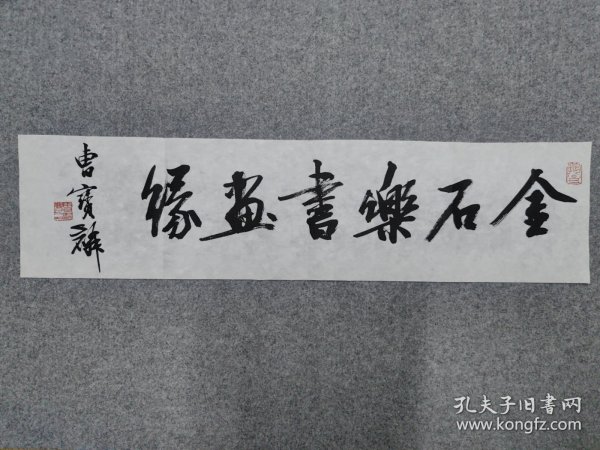 金石樂書畫緣
曹寶麟
孔夫子旧書网
www.kongfz.com